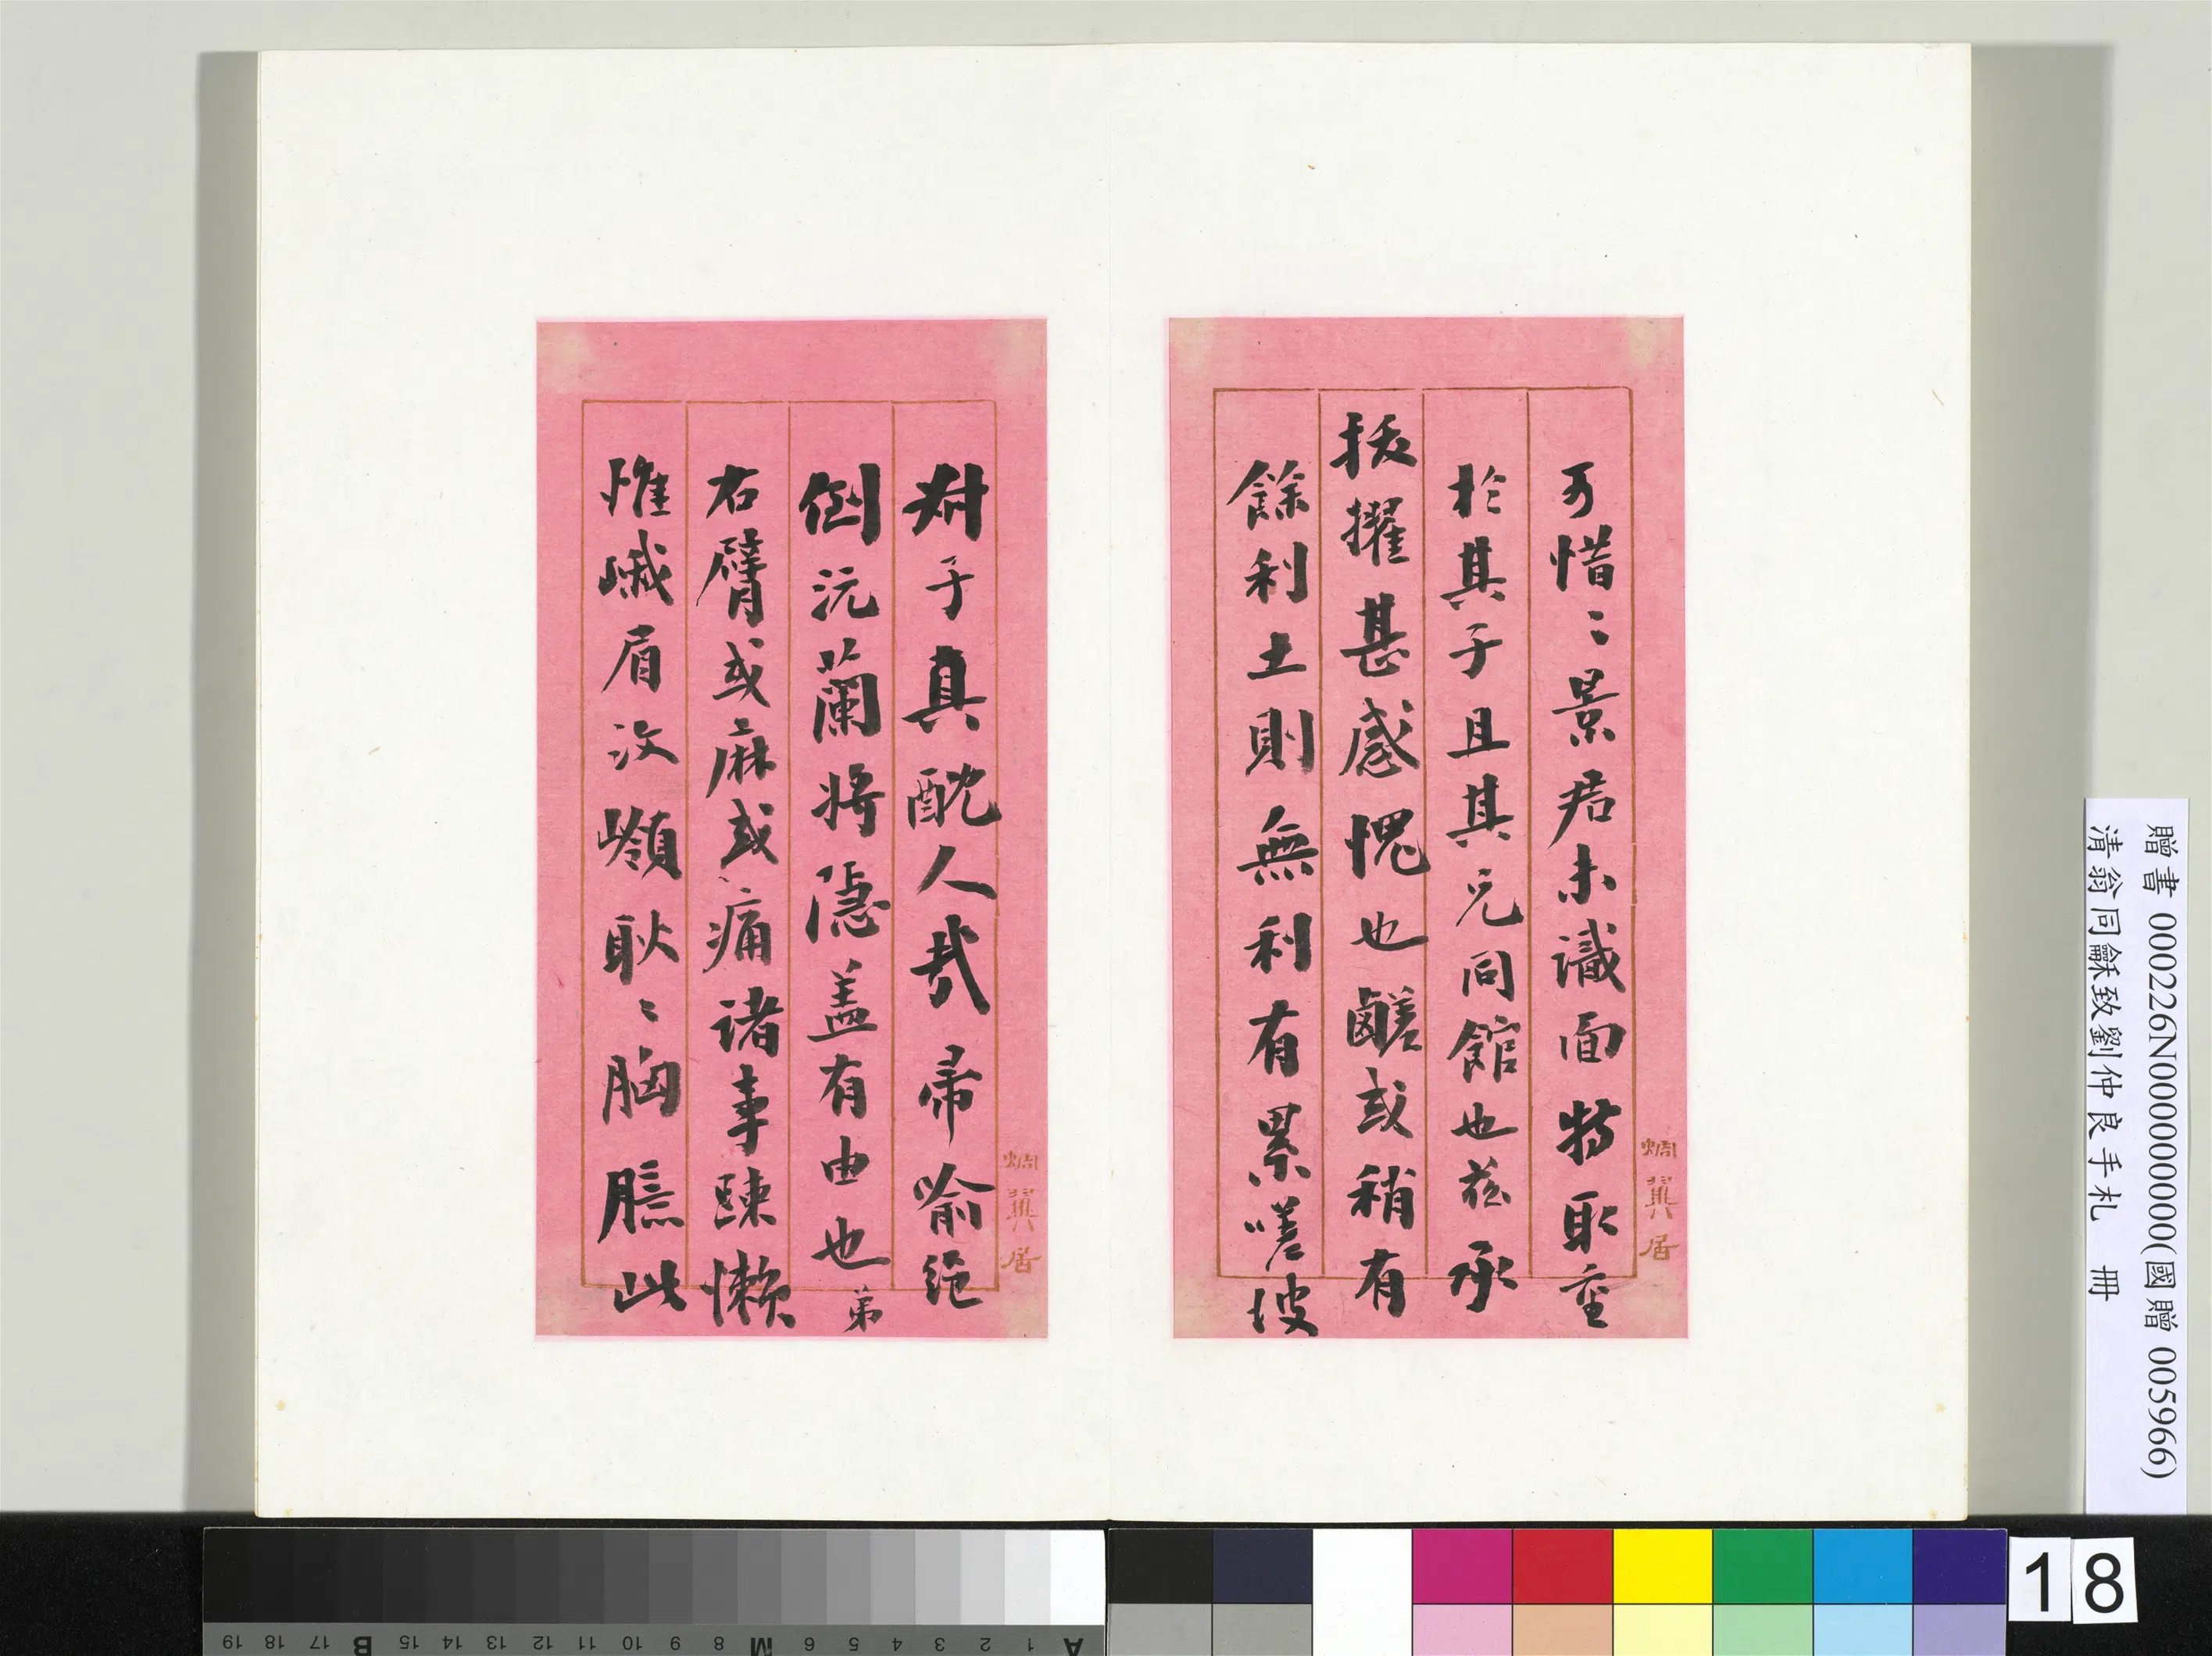 可惜〻景君未識面特取重
於其子且其兄同館也茲承
拔擢甚感愧也鹺或稍有
餘利土則無利有累嗟彼
財子真酖人哉帝喻絕
倒沅蘭將隱盖有由也弟
右臂或麻或痛诸事踈懶
惟戚眉汶嶺耿〻胸臆此
贈書 000226N000000000(國贈 005966)
清翁同龢致劉仲良手札 冊
18
A 1 2 3 4 5 6 M 8 9 10 11 12 13 14 15 B 17 18 19